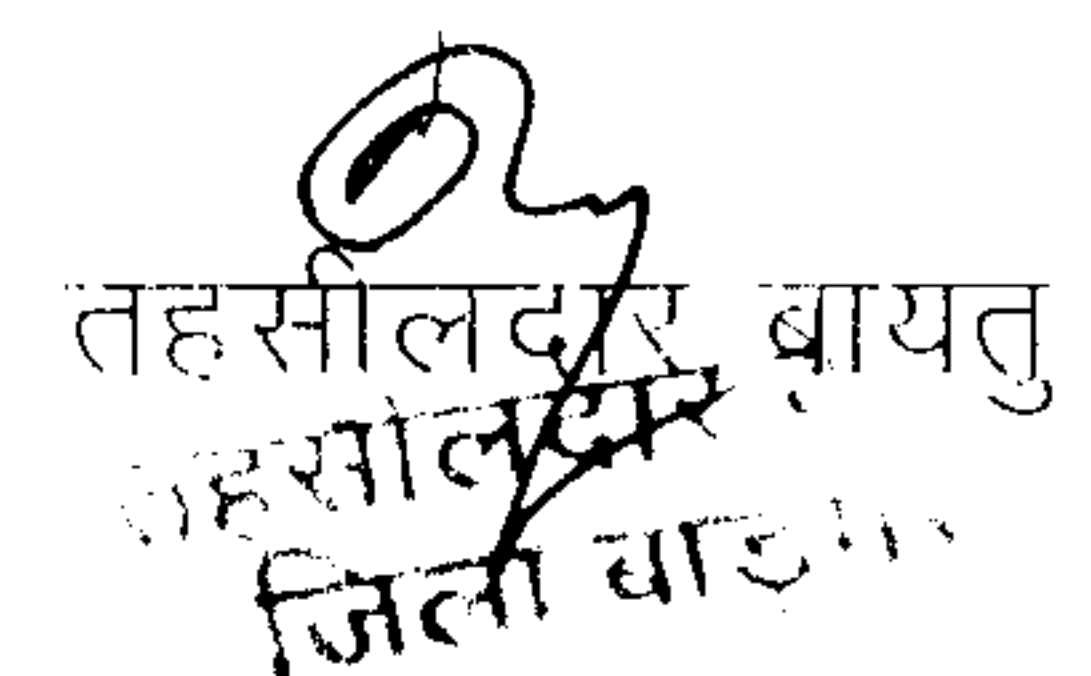 तहसीलदार बायतु
तहसीलदार
जिला